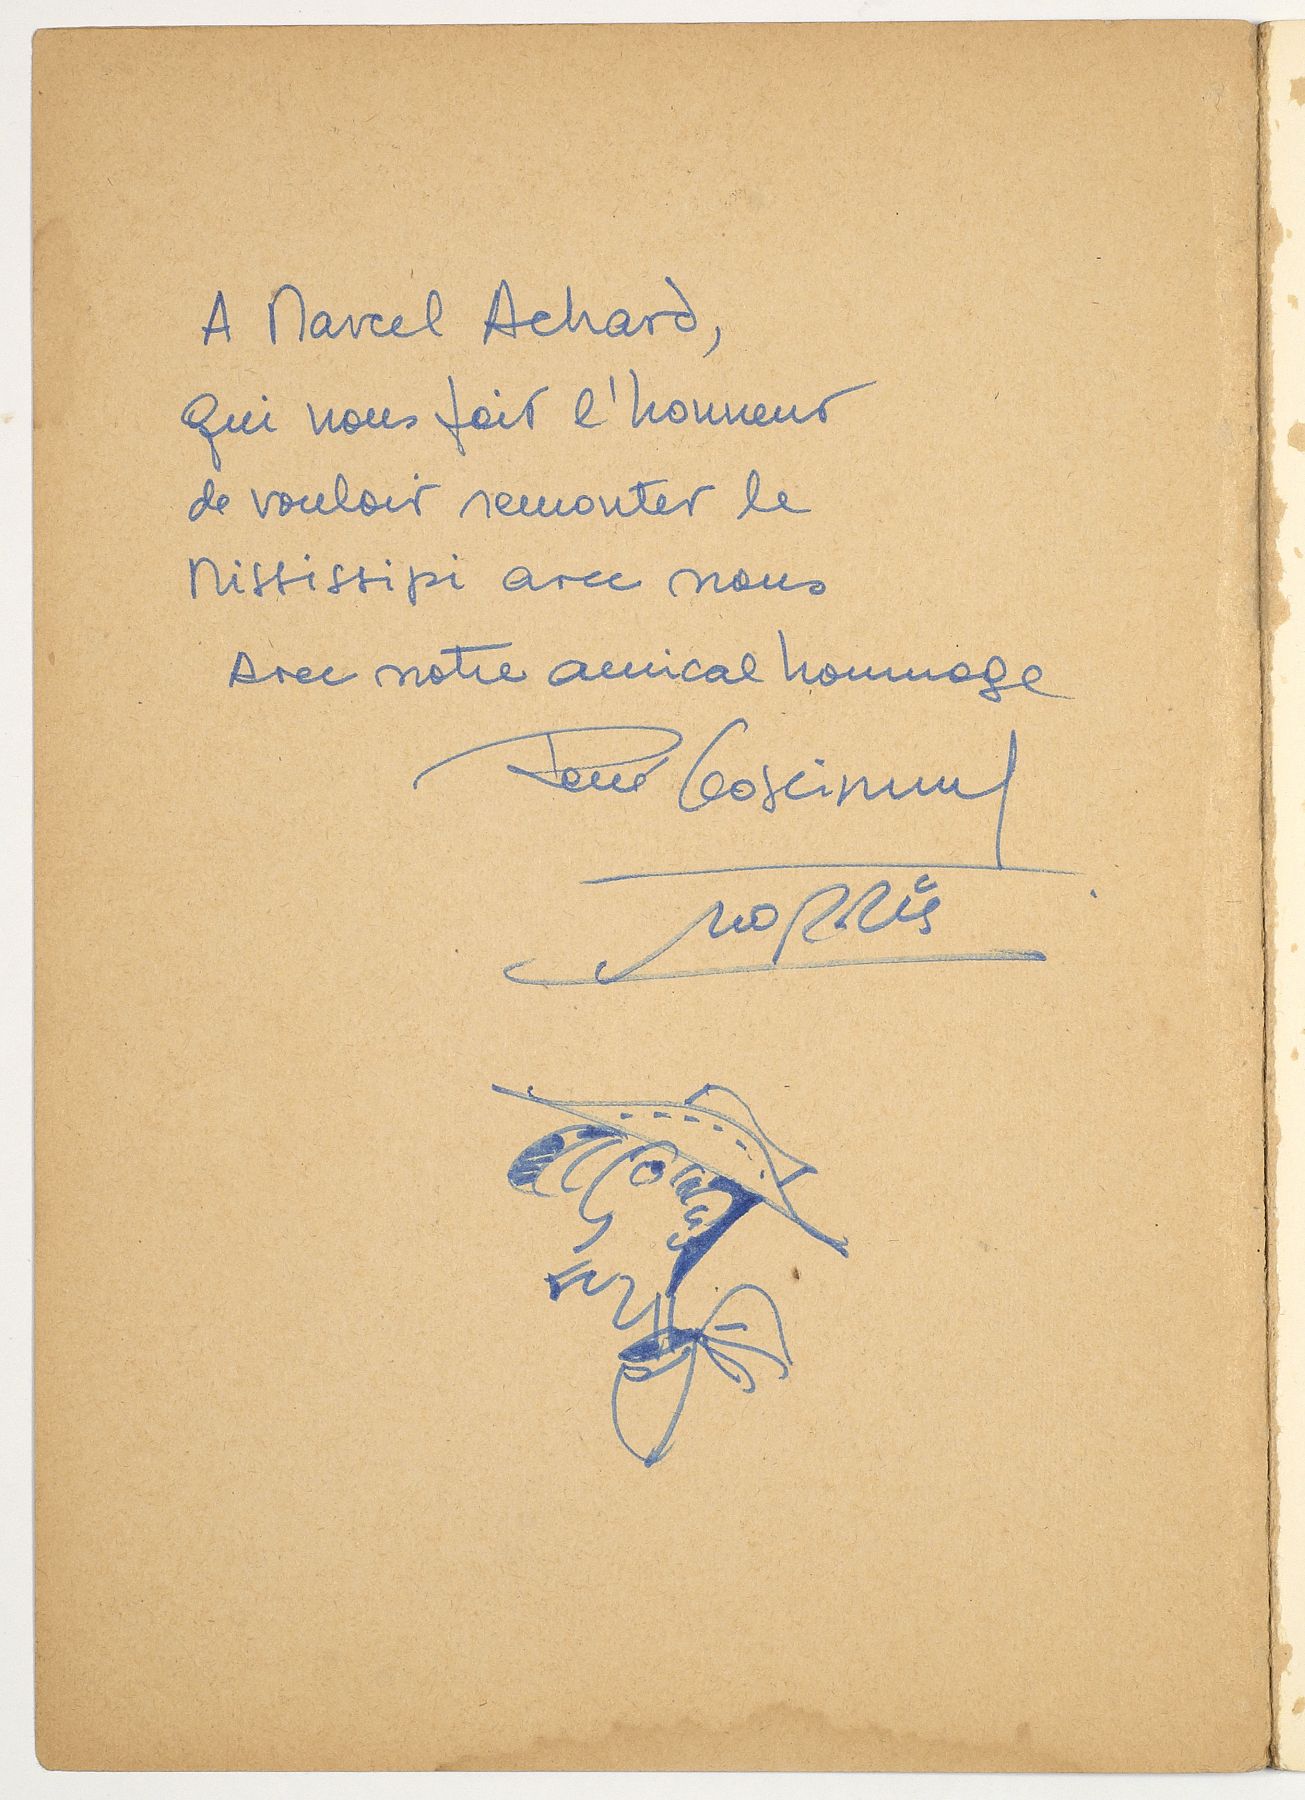 A Marcel Achard,
qui nous fait l'honneur
de vouloir remonter le
Mississipi avec nous
Avec notre amical hommage
René Goscinny
Morris